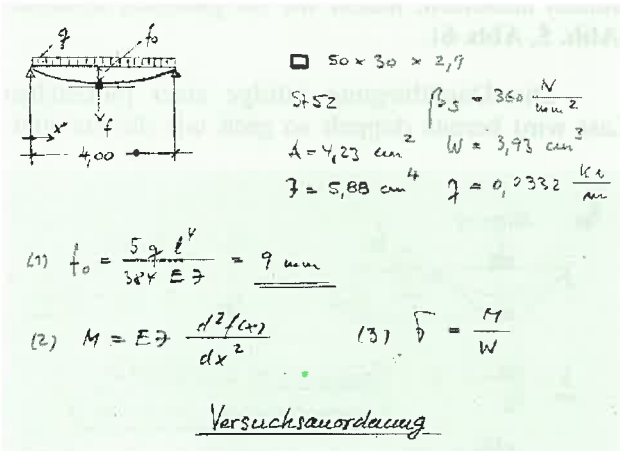 q f₀
□ 50 × 30 × 2,9
St 52 βs = 360 N/mm²
x f
A = 4,23 cm² W = 3,93 cm³
4,00
J = 5,88 cm⁴ q = 0,0332 KN/m
(1) f₀ = 5 q l⁴ / 384 E J = 9 mm
(2) M = EJ d²f(x)/dx² (3) σ = M/W
Versuchsanordnung